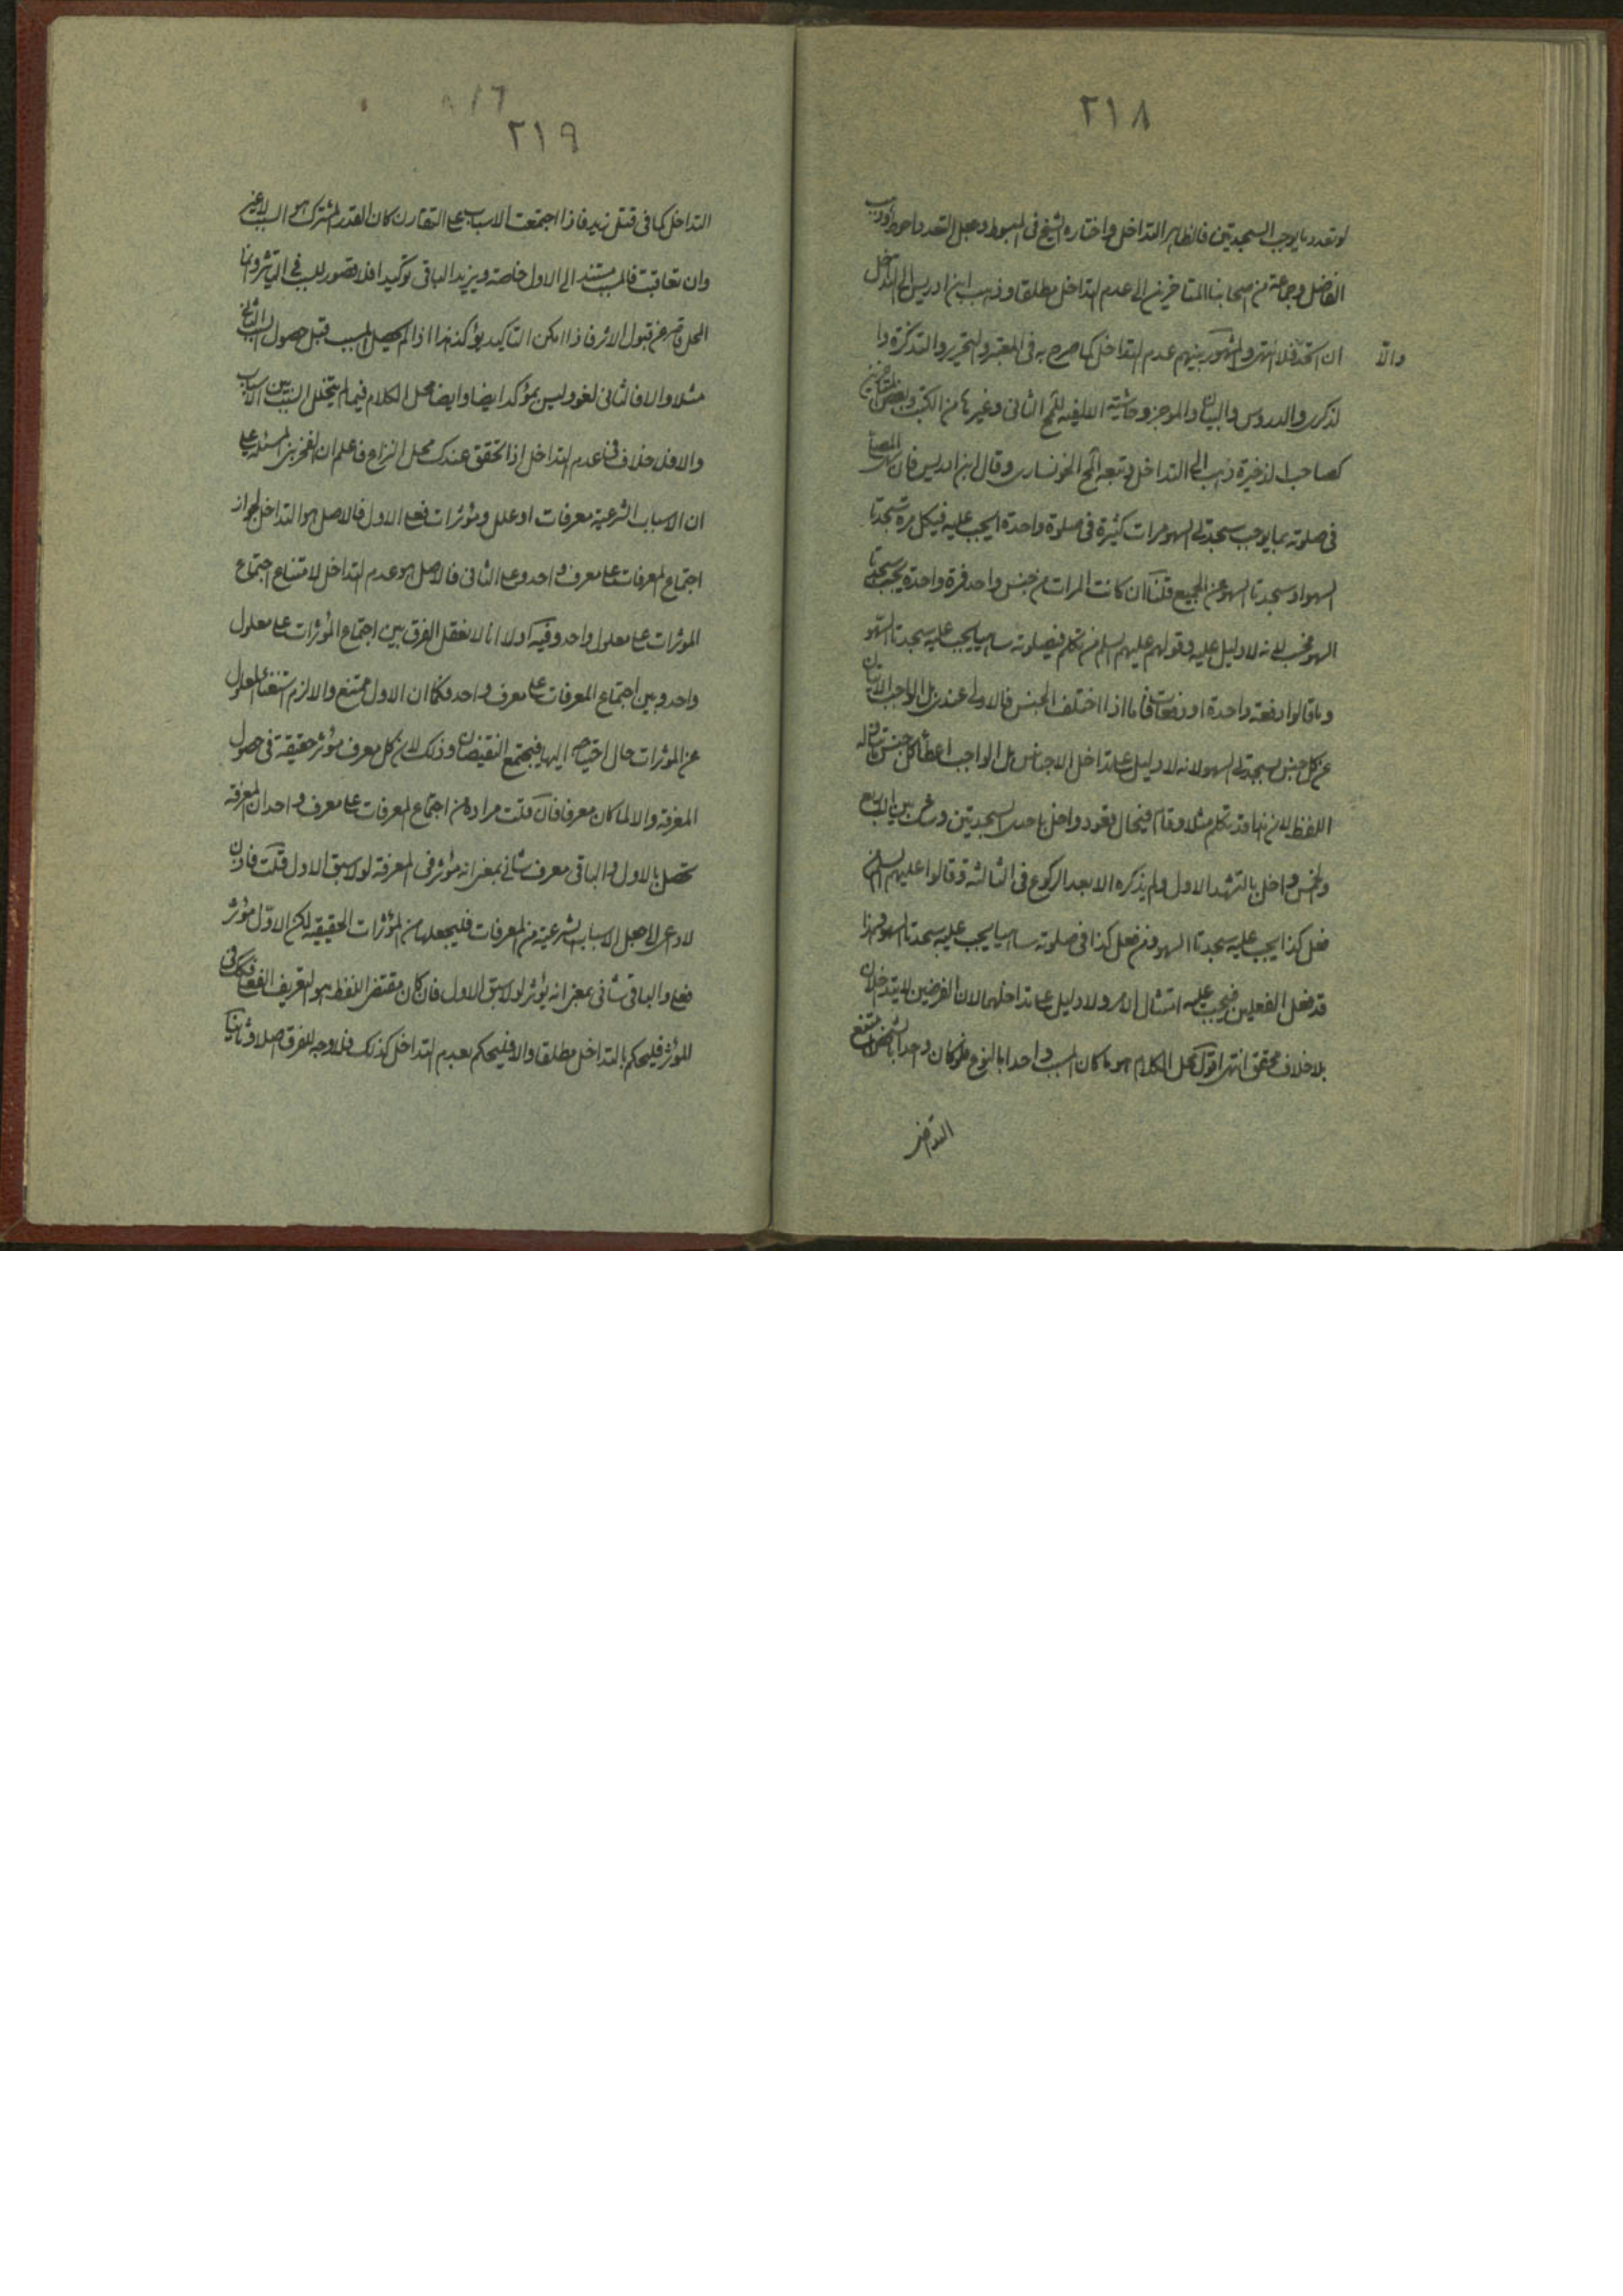 ٢١٨
لو تعدد ما يوجب السجدتين فالظاهر التداخل واختاره الشيخ في المبسوط وجعل التعدد احوط
الفاضل وجماعة من اصحابنا المتاخرين الى عدم التداخل مطلقا وذهب ابن ادريس الى التداخل
ان اتحد فلا انتهى والمشهور بينهم عدم التداخل كما صرح به في المعتبر والتحرير والتذكرة وا
والا
لذكرى والدروس والبيان والموجز وحاشية الالفية للمح الثاني وغيرها من الكتب وبعض المتاخرين
كصاحب الذخيرة ذهب الى التداخل وتبعه المح الخونساري وقال ابن ادريس فان سها المصلي
في صلوته بما يوجب سجدتي السهو مرات كثيرة في صلوة واحدة ايجب عليه في كل مرة سجدتا
السهو او سجدتا السهو عن الجميع قلنا ان كانت المرات من جنس واحد فمرة واحدة يجب سجدتا
السهو لانه لا دليل عليه وقولهم عليهم السلم من تكلم في صلوته ساهيا يجب عليه سجدتا السهو
وما قالوا دفعة واحدة او دفعات فاما اذا اختلف الجنس فالاولى عندي بل الواجب الاتيان
عن كل جنس بسجدتي السهو لانه لا دليل على تداخل الاجناس بل الواجب اعطاء كل جنس ما تناوله
اللفظ لان هذا قد تكلم مثلا وقام في حال قعود واخل باحدى السجدتين وشك بين الاربع
والخمس واخل بالتشهد الاول ولم يذكره الا بعد الركوع في الثالثة وقالوا عليهم السلم من
فعل كذا يجب عليه سجدتا السهو ومن فعل كذا في صلوته ساهيا يجب عليه سجدتا السهو وهذا
قد فعل الفعلين فيجب عليه امتثال الامر ولا دليل على تداخلهما لان الفرضين لا يتداخلان
بلا خلاف محقق انتهى اقول محل الكلام هو ما كان السبب واحدا بالنوع فلو كان واحدا بالشخص امتنع
٢١٩
التداخل كما في قتل زيد فاذا اجتمعت الاسباب على التقارن كان القدر المشترك هو السبب لا غير
وان تعاقبت فالمسبب مستند الى الاول خاصة ويزيد الباقي توكيدا فلا قصور للسبب في التاثير وانما
المحل قاصر عن قبول الاثر فاذا امكن التاكيد يؤكد هذا اذا لم يحصل المسبب قبل حصول السبب الثاني
مثلا والا فالثاني لغو وليس بمؤكد ايضا وايضا محل الكلام فيما لم يتخلل السبب بين الاسباب
والا فلا خلاف في عدم التداخل اذا تحقق عندك محل النزاع فاعلم ان الفخر بنى المسئلة على
ان الاسباب الشرعية معرفات او علل ومؤثرات فعلى الاول فالاصل هو التداخل لجواز
اجتماع المعرفات على معرف واحد وعلى الثاني فالاصل هو عدم التداخل لامتناع اجتماع
المؤثرات على معلول واحد وفيه اولا انا لا نعقل الفرق بين اجتماع المؤثرات على معلول
واحد وبين اجتماع المعرفات على معرف واحد فكما ان الاول ممتنع والا لزم استغناء المعلول
عن المؤثرات حال احتياجه اليها فيجتمع النقيضان وذلك لان كل معرف مؤثر حقيقة في حصول
المعرفة والا لما كان معرفا فان قلت مراده من اجتماع المعرفات على معرف واحد ان المعرفة
تحصل بالاول والباقي معرف شاني بمعنى انه مؤثر في المعرفة لولا سبق الاول قلت فاذن
لا داعي لاجعل الاسباب الشرعية من المعرفات فليجعلها من المؤثرات الحقيقية لكن الاول مؤثر
فعلا والباقي شاني بمعنى انه يؤثر لولا سبق الاول فان كان مقتضى اللفظ هو التعريف الفعلي
للمؤثر فليحكم بالتداخل مطلقا والا فليحكم بعدم التداخل كذلك فلا وجه للفرق اصلا وثانيا